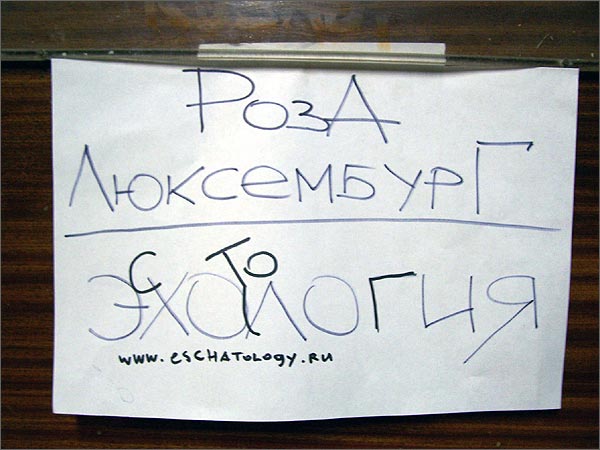 РОЗА
ЛЮКСЕМБУРГ
ЭСХАТОЛОГИЯ
www.eSCHATology.ru